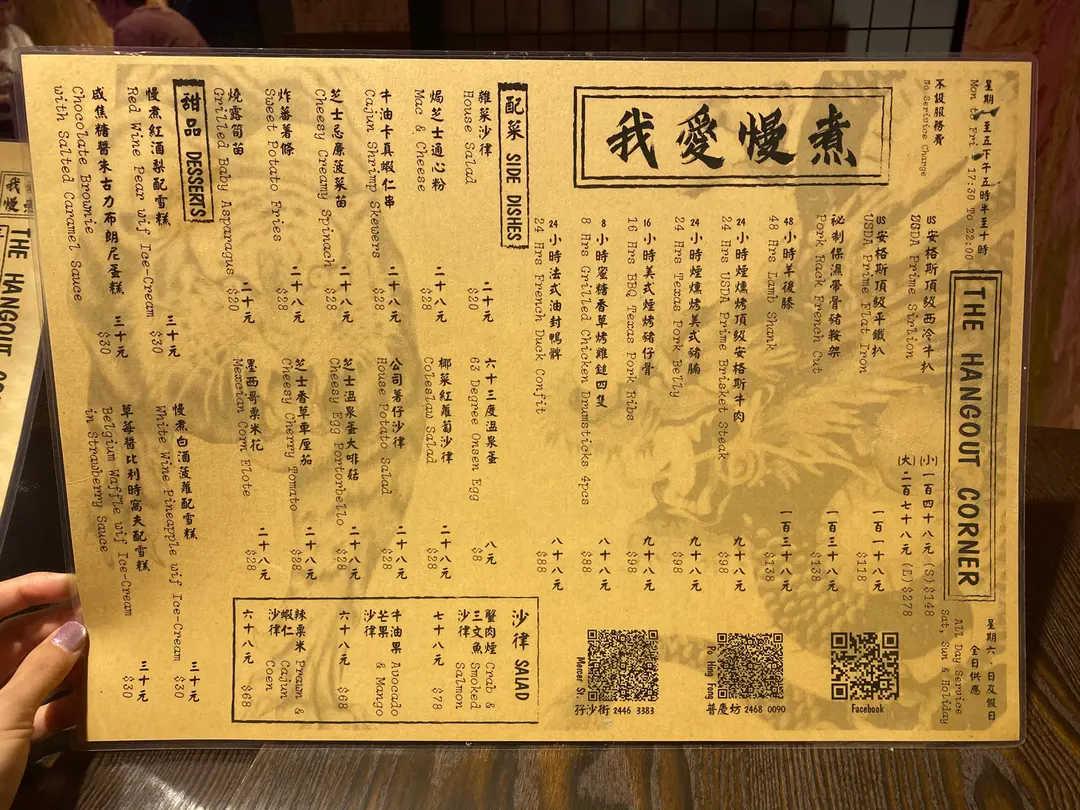 星期一至五下午五時半至十時
Mon to Fri , 17:30 To 22:00
不設服務費
No Serivice Charge
THE HANGOUT CORNER
星期六、日及假日
全日供應
All Day Service
Sat, Sun & Holiday
我愛慢煮
US安格斯頂級西冷牛扒 (小)一百四十八元 (S)$148
USDA Prime Sirlion (大)二百七十八元 (L)$278
US安格斯頂級平鐵扒 一百一十八元
USDA Prime Flat Iron $118
秘制保濕帶骨豬鞍架 一百三十八元
Pork Rack French Cut $138
48小時羊後膝 一百三十八元
48 Hrs Lamb Shank $138
24小時煙燻烤頂級安格斯牛肉 九十八元
24 Hrs USDA Prime Brisket Steak $98
24小時煙燻烤美式豬腩 九十八元
24 Hrs Texas Pork Belly $98
16小時美式煙烤豬仔骨 九十八元
16 Hrs BBQ Texas Pork Ribs $98
8小時蜜糖香草烤雞鎚四隻 八十八元
8 Hrs Grilled Chicken Drumsticks 4pcs $88
24小時法式油封鴨髀 八十八元
24 Hrs French Duck Confit $88
Facebook
普慶坊 2468 0090
Po Hing Fong
孖沙街 2446 3383
Mercer St.
配菜 SIDE DISHES
雜菜沙律 二十元
House Salad $20
焗芝士通心粉 二十八元
Mac & Cheese $28
牛油卡真蝦仁串 二十八元
Cajun Shrimp Skewers $28
芝士忌廉菠菜苗 二十八元
Cheesy Creamy Spinach $28
炸蕃薯條 二十八元
Sweet Potato Fries $28
燒露筍苗 二十元
Grilled Baby Asparagus $20
六十三度溫泉蛋 八元
63 Degree Onsen Egg $8
椰菜紅蘿蔔沙律 二十八元
Coleslaw Salad $28
公司薯仔沙律 二十八元
House Potato Salad $28
芝士溫泉蛋大啡菇 二十八元
Cheesy Egg Portorbello $28
芝士香草車厘茄 二十八元
Cheesy Cherry Tomato $28
墨西哥粟米花 二十八元
Mexcian Corn Elote $28
沙律 SALAD
蟹肉煙三文魚沙律 七十八元
Crab & Smoked Salmon $78
牛油果芒果沙律 六十八元
Avocado & Mango $68
辣粟米蝦仁沙律 六十八元
Prawn & Cajun Coen $68
甜品 DESSERTS
慢煮紅酒梨配雪糕 三十元
Red Wine Pear wif Ice-Cream $30
咸焦糖醬朱古力布朗尼蛋糕 三十元
Chocolate Brownie
with Salted Caramel Sauce $30
慢煮白酒菠蘿配雪糕 三十元
White Wine Pineapple wif Ice-Cream $30
草莓醬比利時窩夫配雪糕 三十元
Belgium Waffle wif Ice-Cream
in Strawberry Sauce $30
我慢煮
THE HANGOUT CO